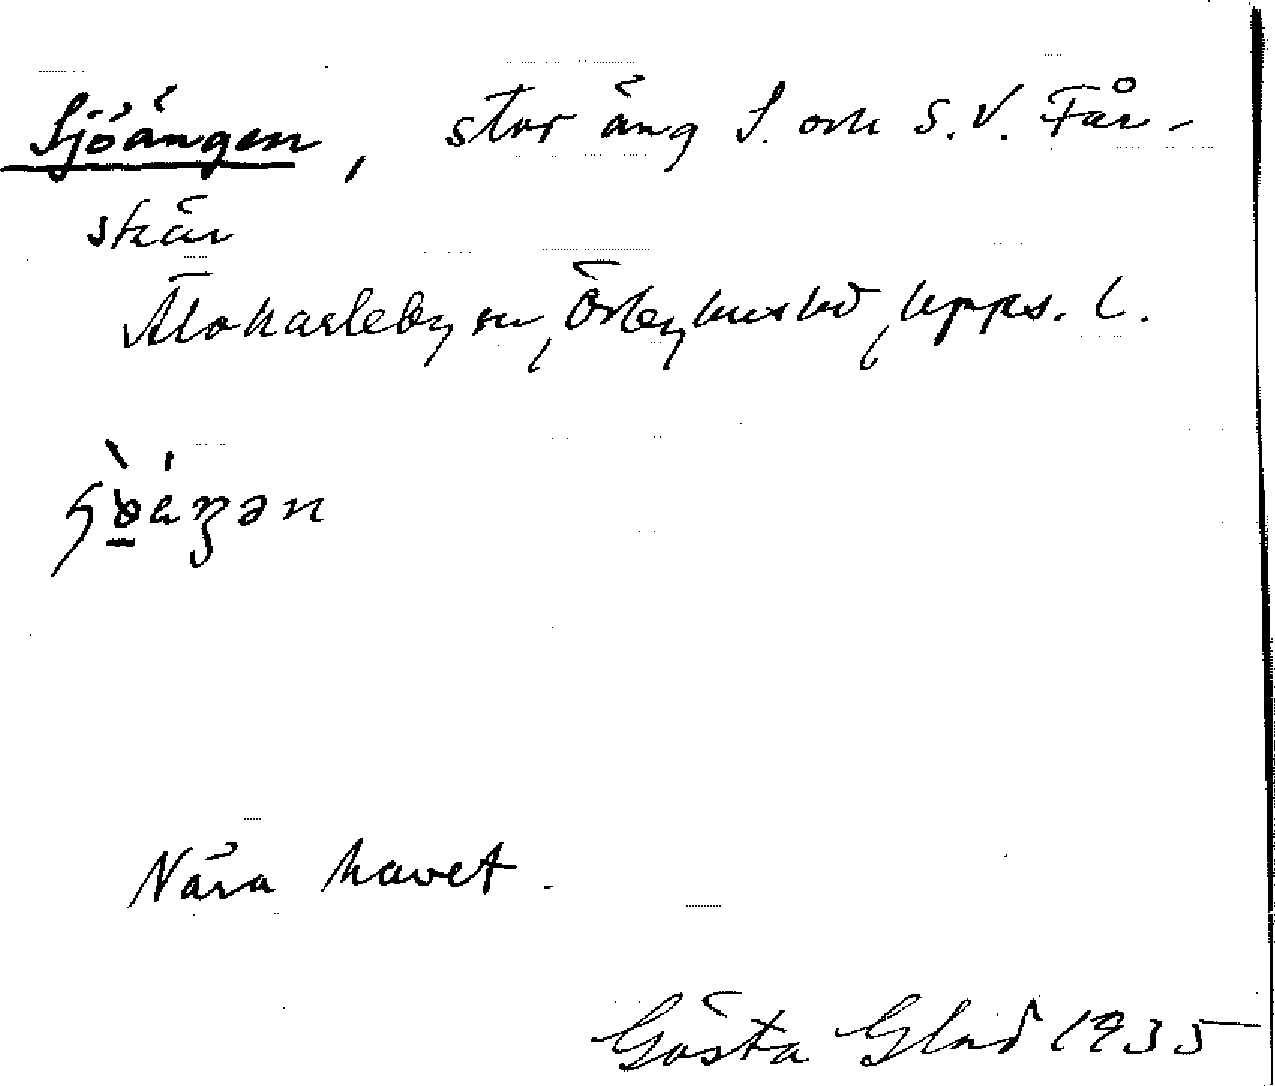 Sjöängen, stor äng S. och S.V. Får-
skär
Älvkarleby sn, Örbyhus hd, Upps. l.
Nära havet.
Gösta Glad 1935